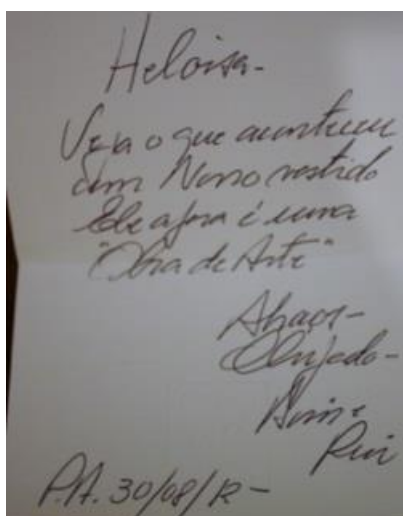 Heloisa -
Veja o que aconteceu
com Nosso vestido
Ele agora é uma
"Obra de Arte"
Abraços -
Rui
P.A. 30/08/12 -